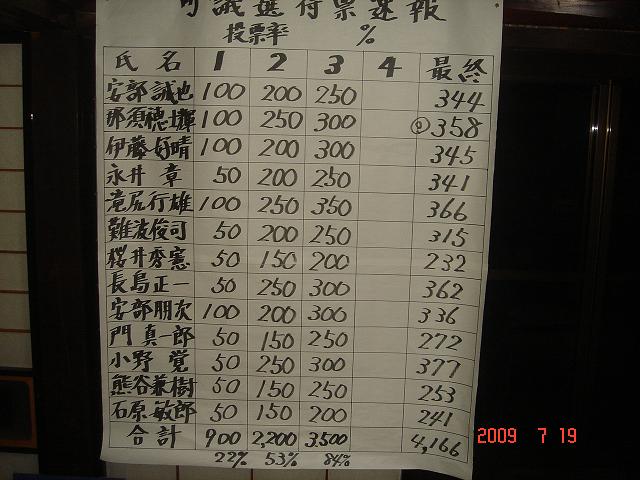 町議選得票速報
投票率 %
氏名 1 2 3 4 最終
安部誠也 100 200 250 344
那須穂輝 100 250 300 358
伊藤好晴 100 200 300 345
永井 章 50 200 250 341
滝尻行雄 100 250 350 366
難波俊司 50 200 250 315
桜井秀憲 50 150 200 232
長島正一 50 250 300 362
安部朋次 100 200 300 336
門 真一郎 50 150 250 272
小野 覚 50 250 300 377
熊谷兼樹 50 150 250 253
石原敏郎 50 150 200 241
合計 900 2,200 3,500 4,166
22% 53% 84%
2009 7 19